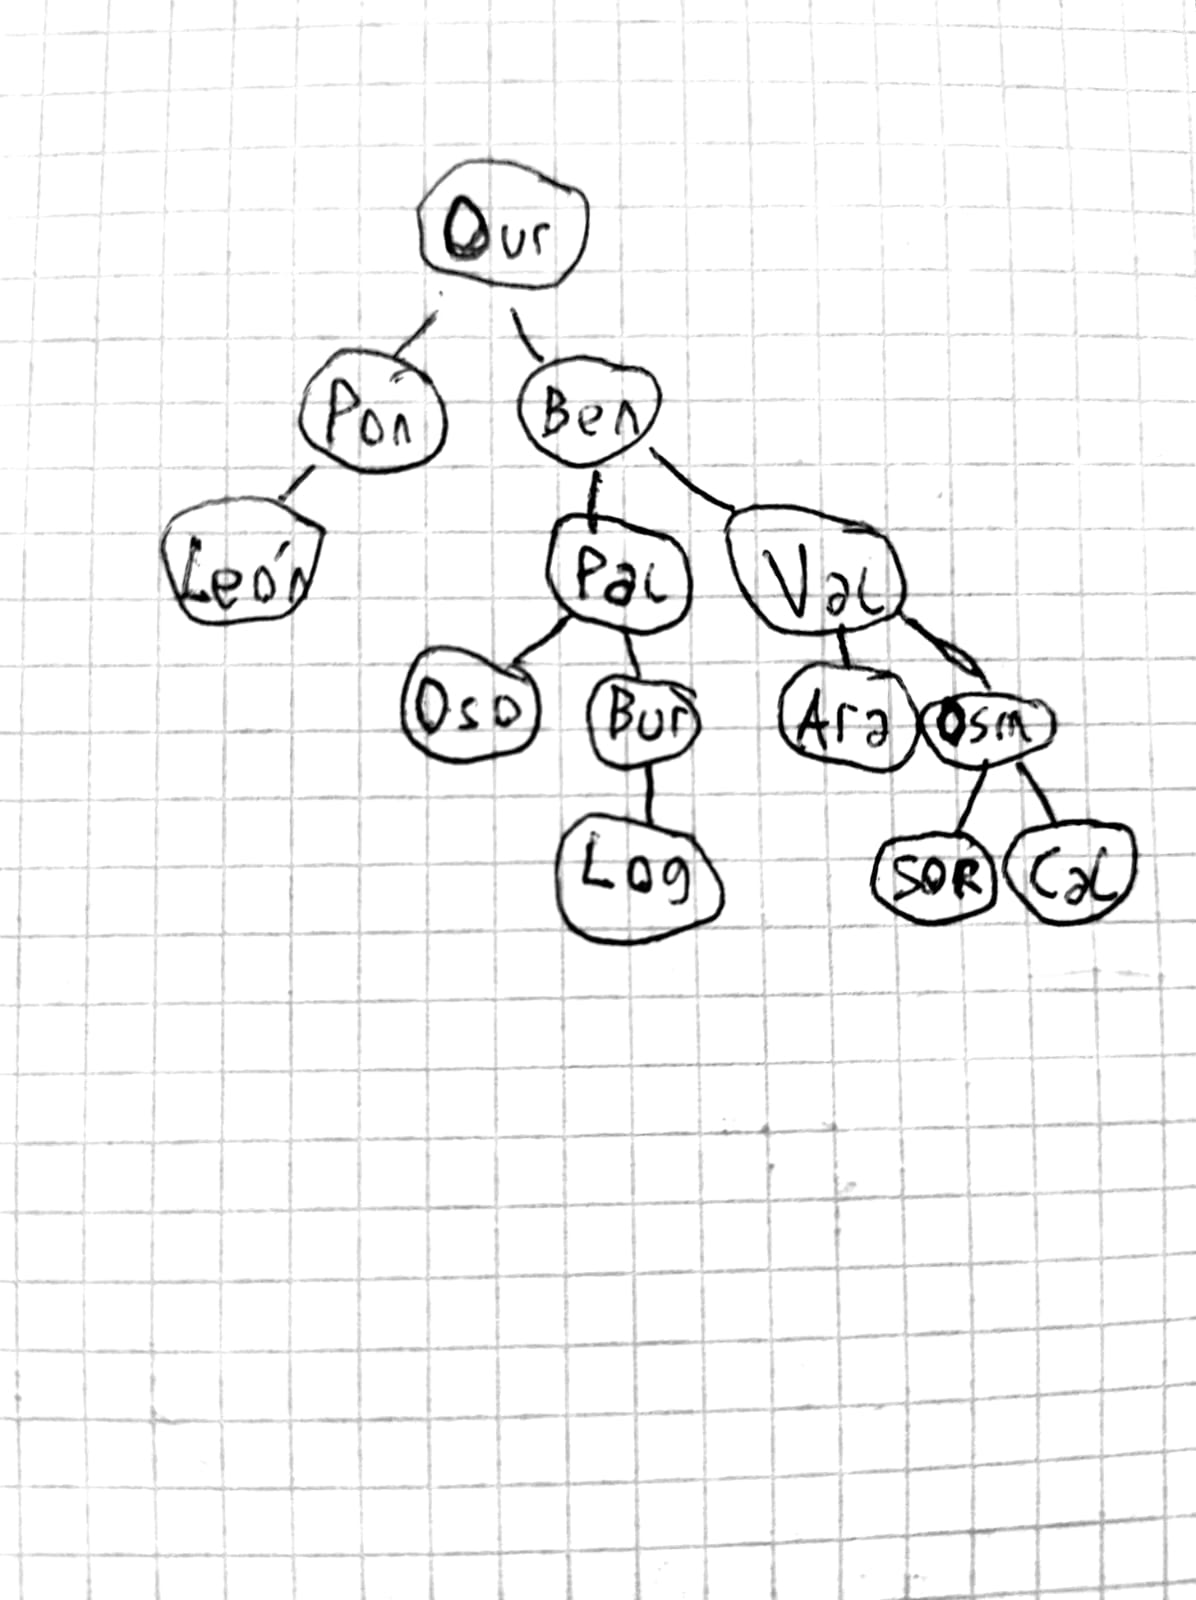 Our
Pon Ben
León Pal Val
Oso Bur Ara Osm
Log SOR Cal